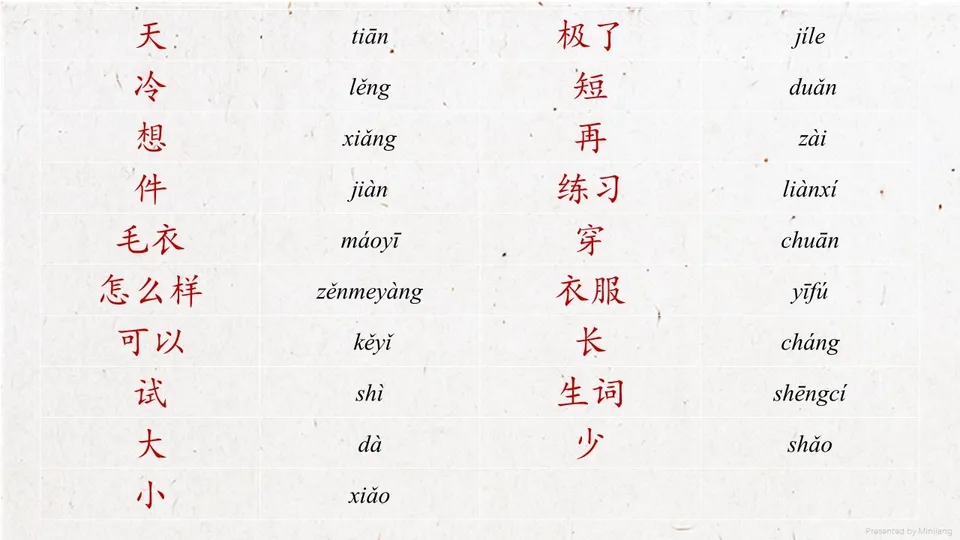 天 tiān 极了 jíle
冷 lěng 短 duǎn
想 xiǎng 再 zài
件 jiàn 练习 liànxí
毛衣 máoyī 穿 chuān
怎么样 zěnmeyàng 衣服 yīfú
可以 kěyǐ 长 cháng
试 shì 生词 shēngcí
大 dà 少 shǎo
小 xiǎo
Presented by Minjiang